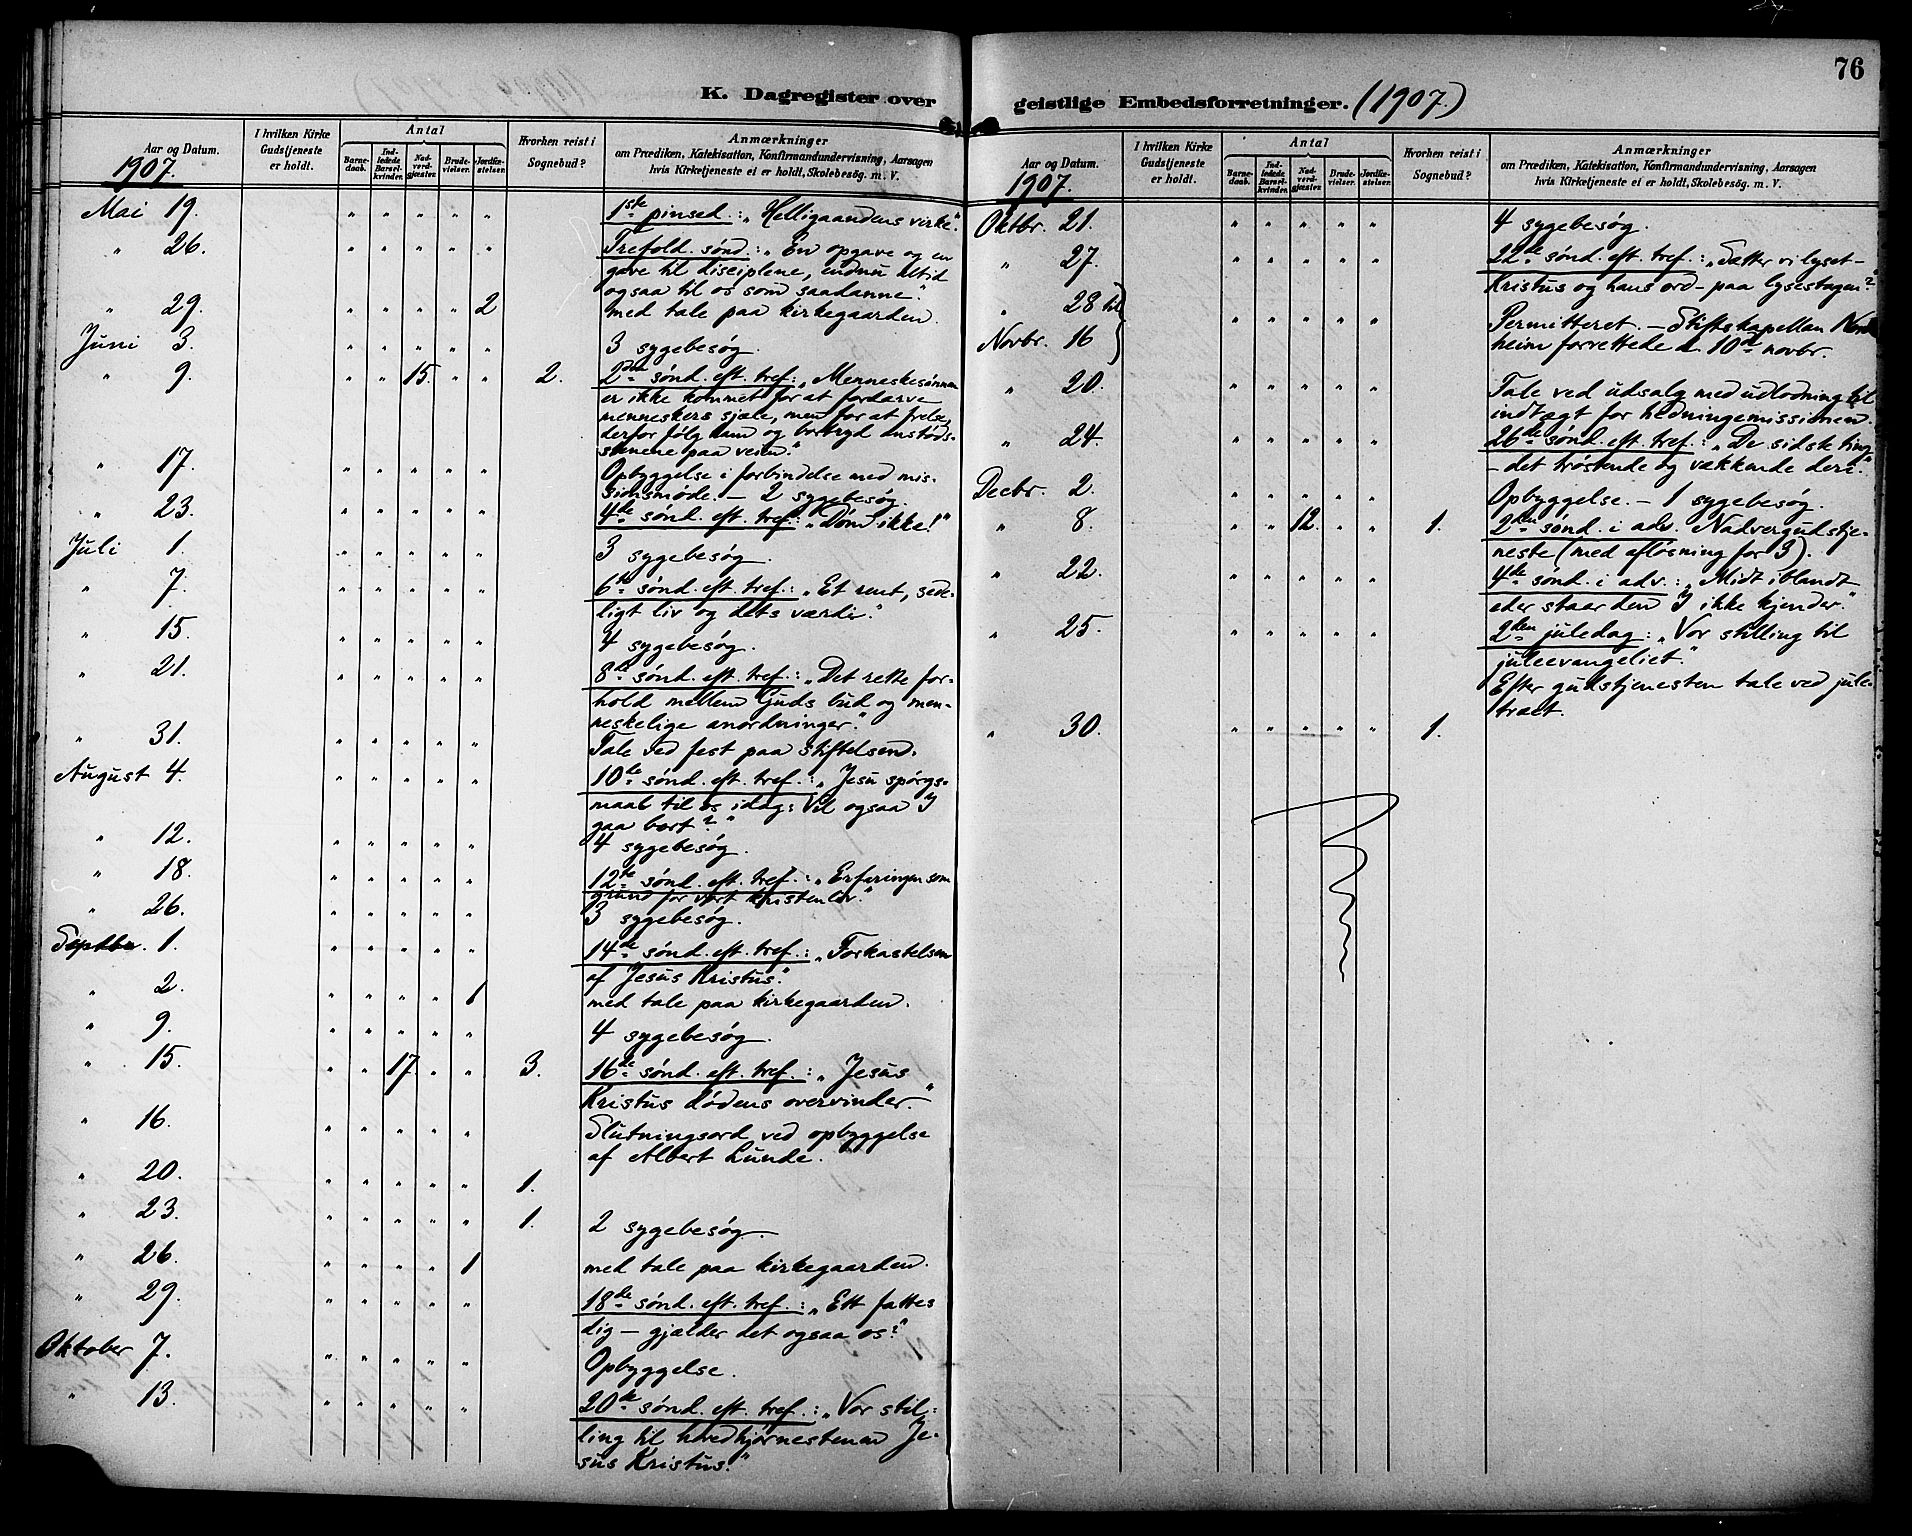 76
K. Dagregister over geistlige Embedsforretninger. (1907.)
Aar og Datum.
1907.
I hvilken Kirke Gudstjeneste er holdt.
Antal
Barnedaab.
Indledede Barselkvinder.
Nadverdgjæster.
Brudevielser.
Jordfæstelser.
Hvorhen reist i Sognebud?
Anmærkninger
om Prædiken, Katekisation, Konfirmandundervisning, Aarsagen
hvis Kirketjeneste ei er holdt, Skolebesøg. m. V.
Mai 19. " " " " " 1ste pinsed.: „Helligaandens virke."
" 26. " " " " " Trefold. sønd.: „En opgave og en
gave til disciplene, endnu altid
ogsaa til os som saadanne."
" 29. " " " " 2 med tale paa kirkegaarden.
Juni 3. " " " " " 3 sygebesøg.
" 9. " " 15. " " 2. 2den sønd. eft. tref.: „Menneskesønnen
er ikke kommet for at fordærve
menneskers sjæle, men for at frelse,
derfor følg ham og bortryd anstøds-
stenene paa veien."
" 17. " " " " " Opbyggelse i forbindelse med mis-
sionsmøde. – 2 sygebesøg.
" 23. " " " " " 4de sønd. eft. tref.: „Døm ikke!"
Juli 1. " " " " " 3 sygebesøg.
" 7. " " " " " 6te sønd. eft. tref.: „Et rent, sede-
ligt liv og dets værdi."
" 15. " " " " " 4 sygebesøg.
" 21. " " " " " 8de sønd. eft. tref.: „Det rette for-
hold mellem Guds bud og men-
neskelige anordninger."
" 31. " " " " " Tale ved fest paa stiftelsen.
August 4. " " " " " 10de sønd. eft. tref.: „Jesu spørgs-
maal til os idag: Vil ogsaa I
gaa bort?"
" 12. " " " " " 4 sygebesøg.
" 18. " " " " " 12te sønd. eft. tref.: „Erfaringen som
grund for vort kristenliv."
" 26. " " " " " 3 sygebesøg.
Septbr. 1. " " " " " 14de sønd. eft. tref.: „Forkastelsen
af Jesus Kristus."
" 2. " " " " 1 med tale paa kirkegaarden.
" 9. " " " " " 4 sygebesøg.
" 15. " " 17. " " 3. 16de sønd. eft. tref.: „Jesus
Kristus dødens overvinder."
" 16. " " " " " Slutningsord ved opbyggelse
af Albert Lunde.
" 20. " " " " " 1.
" 23. " " " " " 1. 2 sygebesøg.
" 26. " " " " 1 med tale paa kirkegaarden.
" 29. " " " " " 18de sønd. eft. tref.: „Ett fattes
dig – gjælder det ogsaa os?"
Oktober 7. " " " " " Opbyggelse.
" 13. " " " " " 20de sønd. eft. tref.: „Vor stil-
ling til hovedhjørnestenen Je-
sus Kristus."
Aar og Datum.
1907.
I hvilken Kirke Gudstjeneste er holdt.
Antal
Barnedaab.
Indledede Barselkvinder.
Nadverdgjæster.
Brudevielser.
Jordfæstelser.
Hvorhen reist i Sognebud?
Anmærkninger
om Prædiken, Katekisation, Konfirmandundervisning, Aarsagen
hvis Kirketjeneste ei er holdt, Skolebesøg. m. V.
Oktbr. 21. " " " " " 4 sygebesøg.
" 27. " " " " " 22de sønd. eft. tref.: „Sætter vi lyset –
Kristus og hans ord – paa lysestagen?"
" 28 til
Novbr. 16 " " " " " Permitteret. – Stiftskapellan Nord
heim forrettede d. 10de novbr.
" 20. " " " " " Tale ved udsalg med udlodning til
indtægt for hedningemissionen.
" 24. " " " " " 26de sønd. eft. tref.: „De sidste ting
– det trøstende og vækkende deri."
Decbr. 2. " " " " " Opbyggelse. – 1 sygebesøg.
" 8. " " 12. " " 1. 2den sønd. i adv. Nadvergudstje-
neste (med afløsning for 3).
" 22. " " " " " 4de sønd. i adv.: „Midt iblandt
eder staar den I ikke kjender."
" 25. " " " " " 2den juledag: „Vor stilling til
juleevangeliet."
Efter gudstjenesten tale ved jule-
træet.
" 30. " " " " " 1.